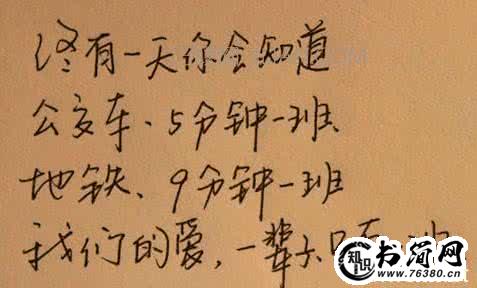 终有一天你会知道
公交车、5分钟一班
地铁、9分钟一班
我们的爱，一辈子只有
知识
书简网
www.76380.cn